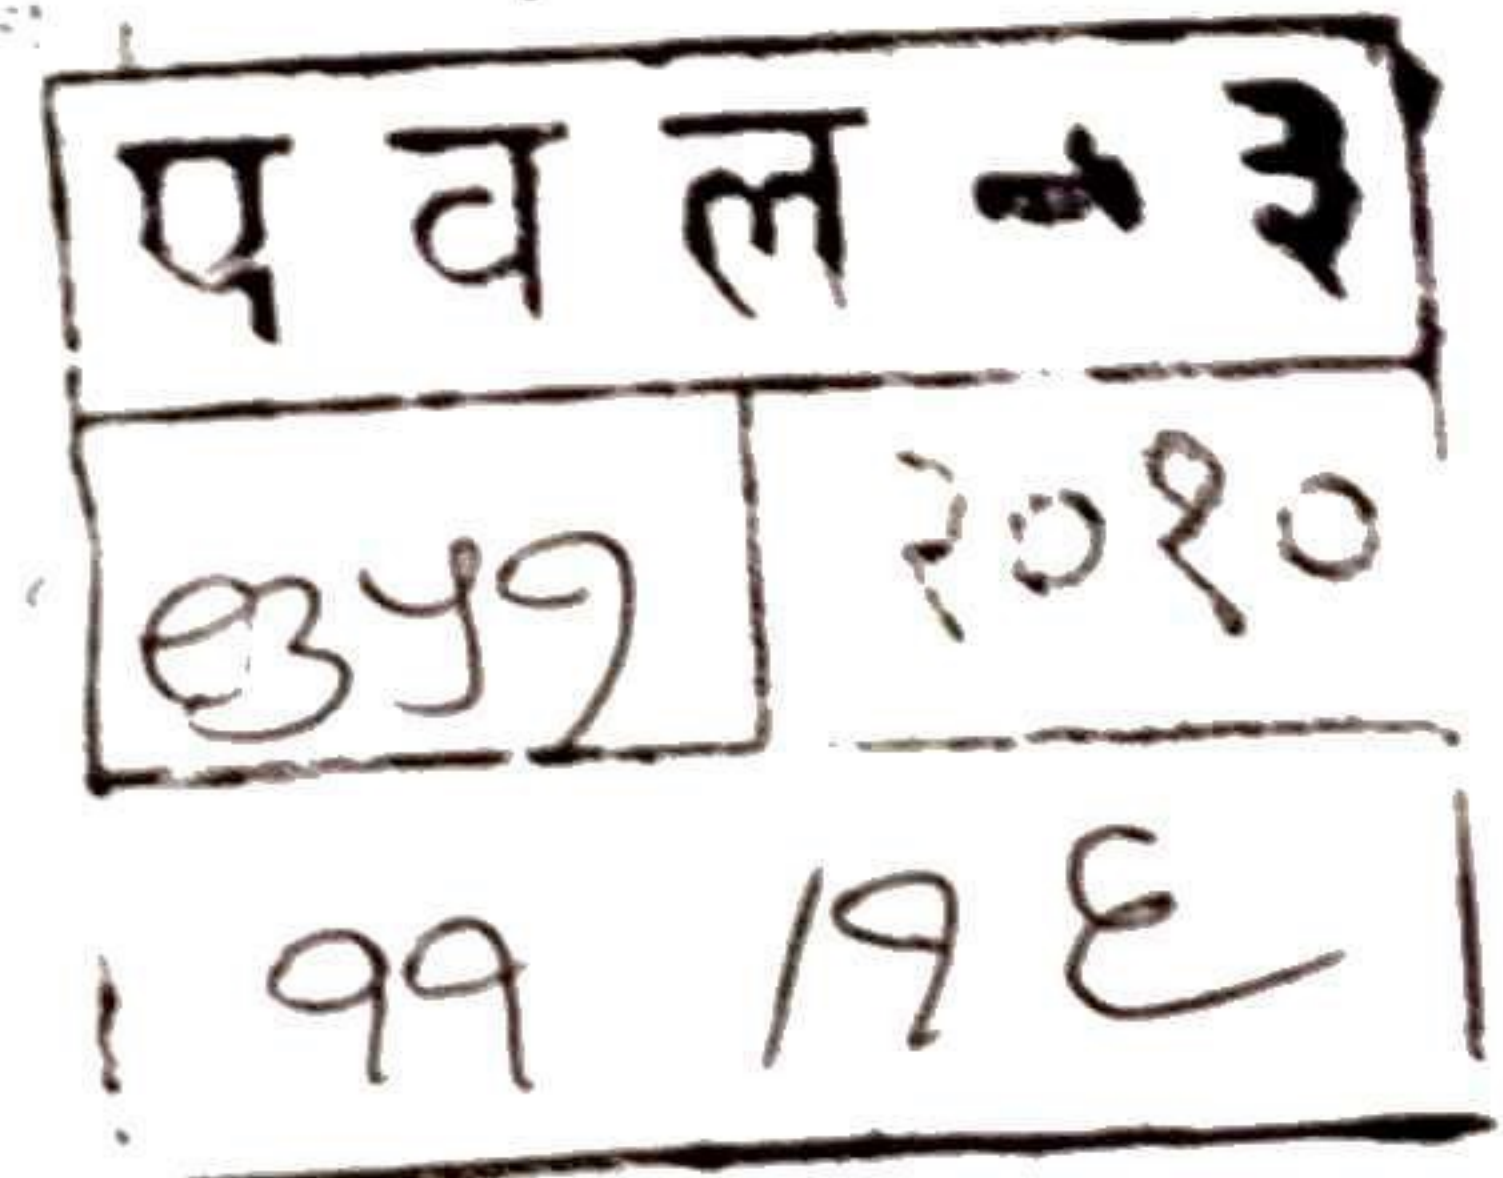 पवल - ३
२०१०
११ /१६